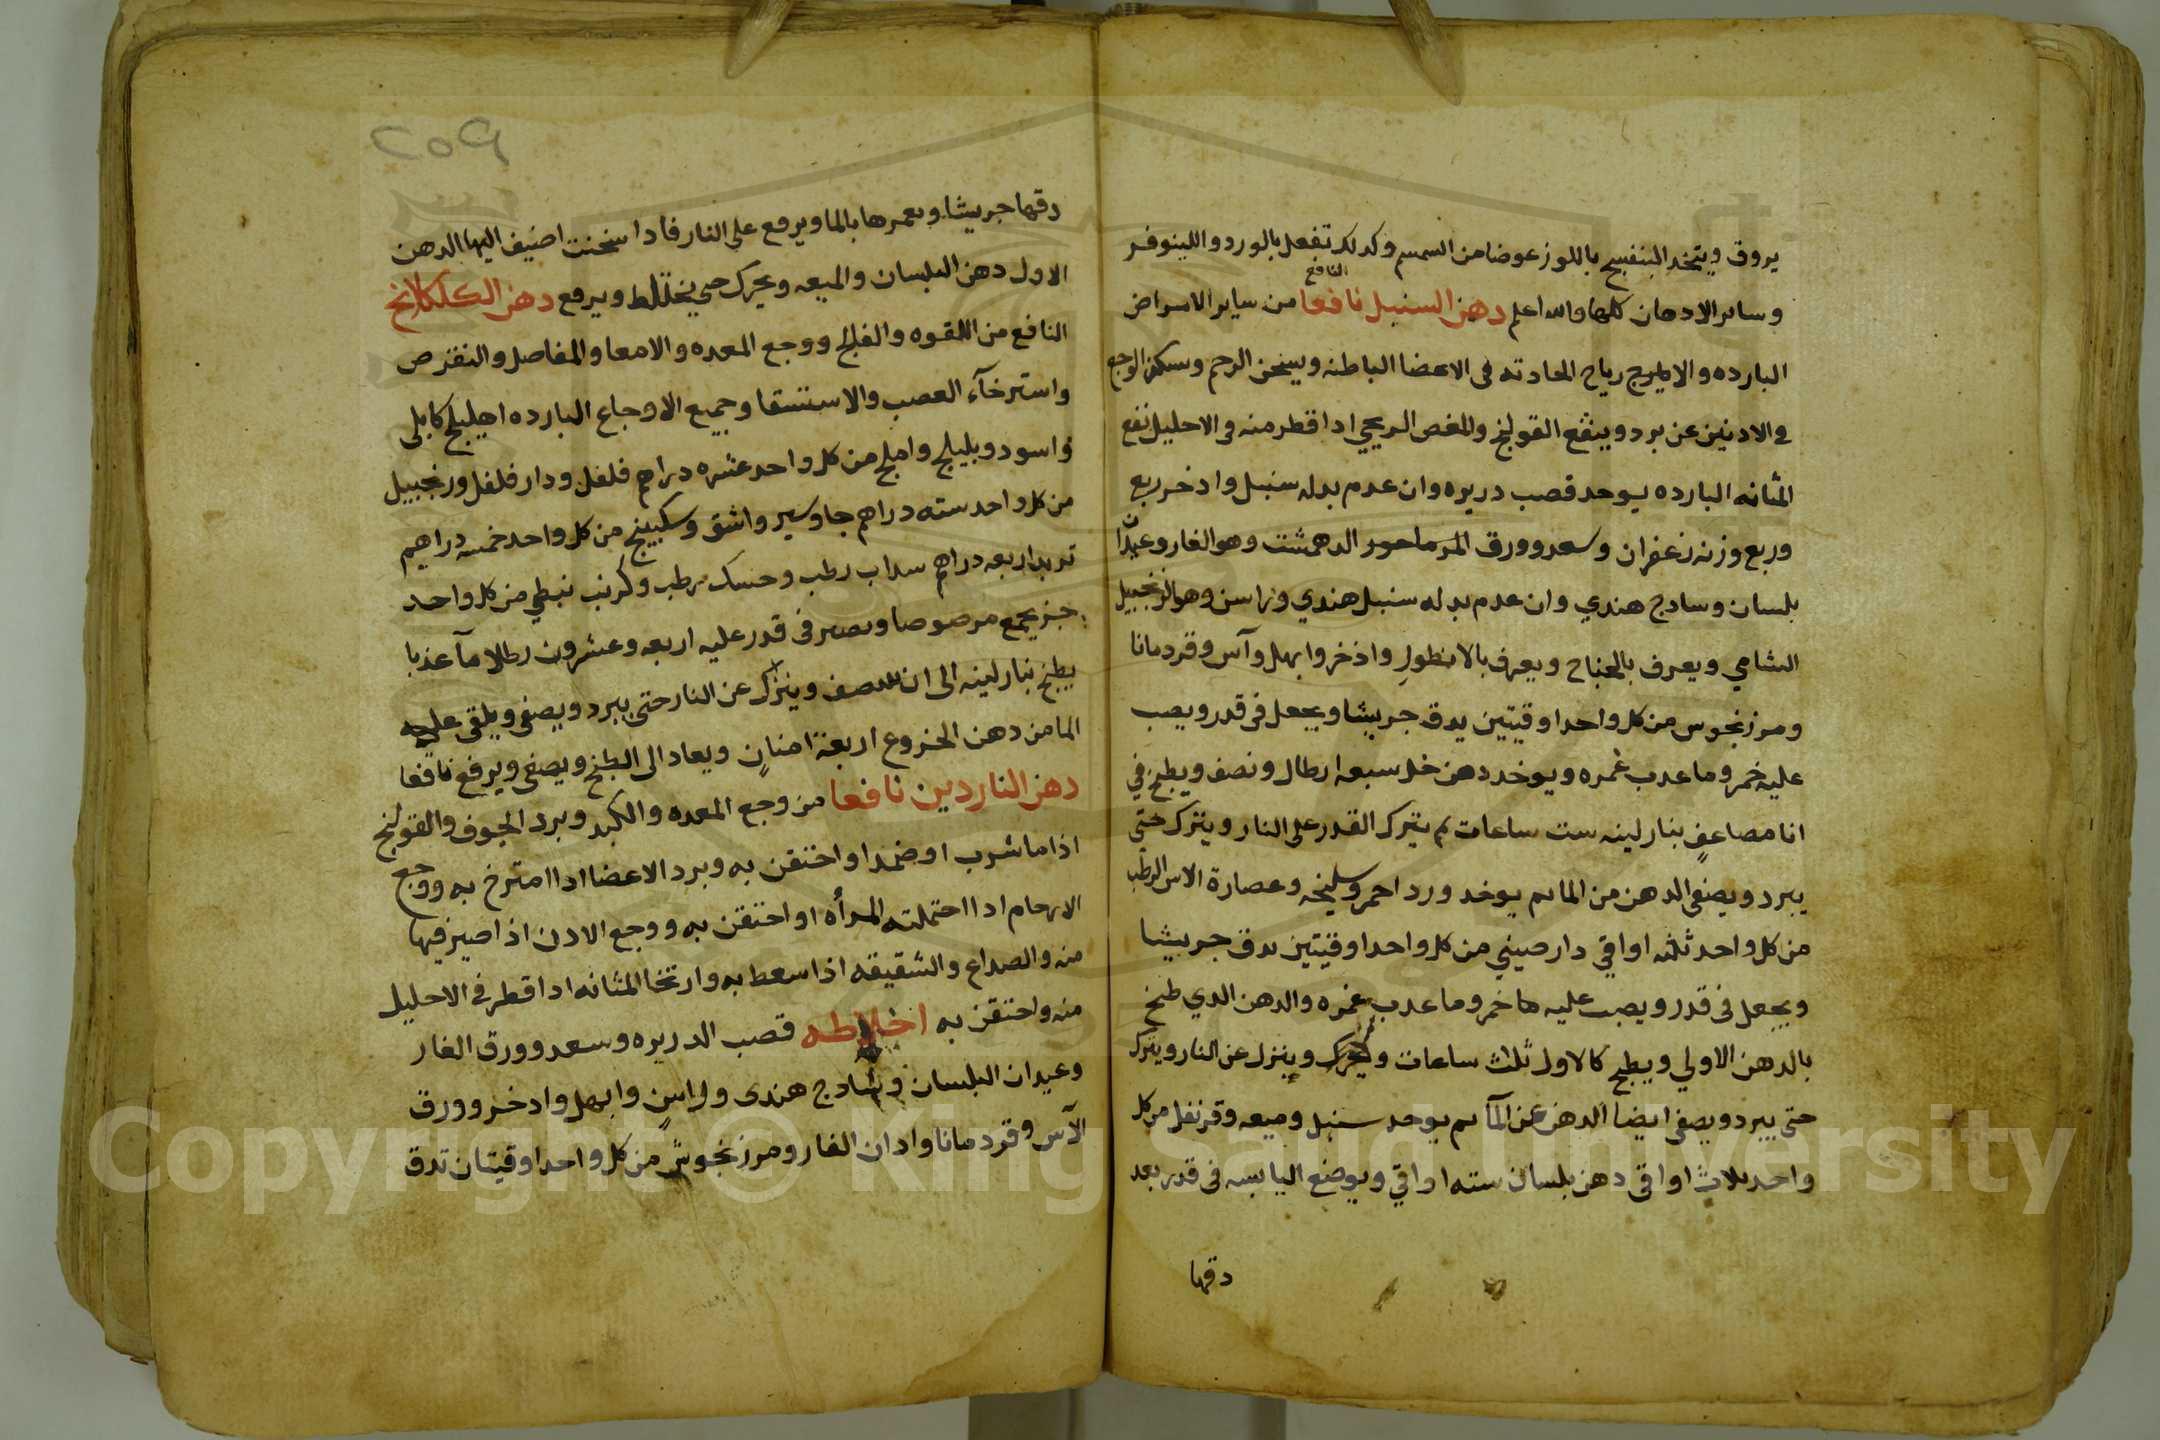 يروق ويتخد البنفسج باللوز عوضا من السمسم وكدلك تفعل بالورد واللينوفر
وساىر الادهان كلها والله اعلم دهن السنبل نافعا النافع من ساير الامراض
البارده والارياح الحادثه فى الاعضا الباطنه ويسخن الرحم وسكن الوجع
فى الادنين عن برد وينفع القولنج والمغص الريحي ادا قطر منه فى الاحليل نفع
المثانه البارده يوحد قصب دريره وان عدم بدله سنبل وادخر ربع
وربع وزنه زعفران وسعد وورق المرماحور الدهمشت وهو الغار وعيدان
بلسان وسادج هندي وان عدم بدله سنبل هندي وراسن وهو الزنجبيل
الشامي ويعرف بالجناح ويعرف بالانطول واذخر وابهل وآس وقردمانا
ومرزنجوس من كل واحد اوقيتين يدق جريشا ويجعل فى قدر ويصب
عليه خمر وما عدب غمره ويوخد دهن خل سبعه ارطال ونصف ويطبخ في
انا مضاعف بنار لينه ست ساعات ثم يترك القدر على النار ويترك حتى
يبرد ويصفى الدهن من الما ثم يوخد ورد احمر وسليخه وعصارة الاس الرطب
من كل واحد ثلثه اواقي دارصيني من كل واحد اوقيتين يدق جريشا
ويجعل فى قدر ويصب عليه ها خمر وما عدب غمره والدهن الدي طبخ
بالدهن الاولي ويطبخ كالاول ثلاث ساعات ويحرك وينزل عن النار ويترك
حتى يبرد ويصفى ايضا الدهن عن المآ ثم يوحد سنبل وميعه وقرنفل من كل
واحد ثلاث اواقى دهن بلسان سته اواقي ويوضع اليابسه فى قدر بعد
دقها
٢٥٩
دقها جريشا ويغمرها بالما ويرفع على النار فادا سخنت اضيف اليها الدهن
الاول دهن البلسان والميعه ويحرك حتى يختلط ويرفع دهن الكلكلانج
النافع من اللقوه والفالج ووجع المعده والامعا والمفاصل والنقرص
واسترخآء العصب والاستسقا وجميع الاوجاع البارده اهليلج كابلى
واسود وبليلج واملج من كل واحد عشره دراهم فلفل ودار فلفل وزنجبيل
من كل واحد سته دراهم جاوسير واشق وسكبينج من كل واحد خمسه دراهم
تربد اربعه دراهم سداب رطب وحسك رطب وكرنب نبطي من كل واحد
جز يجمع مرصوصا ويصير فى قدر عليه اربعه وعشرون رطلا مآ عذبا
يطبخ بنار لينه الى ان ينصف وينزل عن النار حتى يبرد ويصفى ويلقى عليه
الما من دهن الخروع اربعة امنان ويعاد الى الطبخ ويصفى ويرفع نافعا
دهن الناردين نافعا من وجع المعده والكبد وبرد الجوف والقولنج
اذا ما شرب او ضمد او احتقن به وبرد الاعضا ادا امترخ به ووجع
الارحام ادا احتملته المرأه او احتقن به ووجع الادن اذا صير فيها
منه والصداع والشقيقه اذا سعط به وارتخا المثانه ادا قطر فى الاحليل
منه واحتقن به اخلاطه قصب الدريره وسعد وورق الغار
وعيدان البلسان وشادج هندى وراسن وابهل وادخر وورق
الآس وقردمانا وادان الفار ومرزنجوش من كل واحد اوقيتان تدق
Copyright © King Saud University